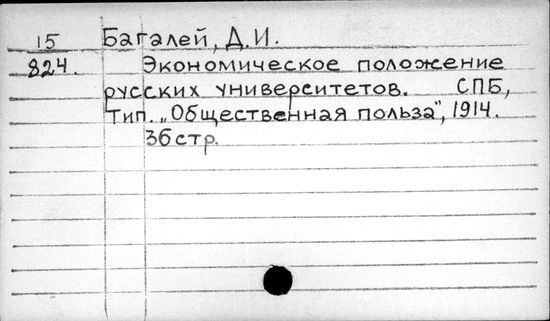 15 Багалей, Д.И.
824. Экономическое положение
русских университетов. СПБ,
Тип. „Общественная польза", 1914.
36 стр.